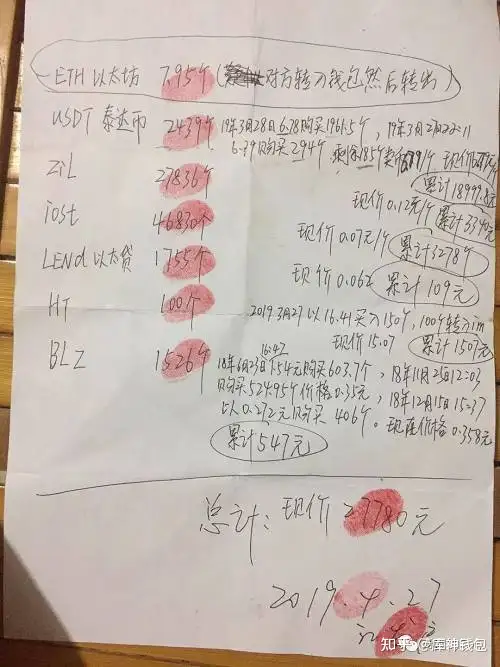 ETH 以太坊 7.95个 (对方转入钱包然后转出)
USDT 泰达币 2439个 19年3月28日6.78购买1961.5个, 19年3月27日22:11
6.79购买294个 剩余185个 现价
累计18999.8元
ZiL 27836个 现价0.12元/个 累计3340元
iost 46830个 现价0.07元/个 累计3278个
LENd 以太贷 1755个 现价0.062 累计109元
HT 100个 2019.3月27以16.41买入150个, 100个转入im
现价15.07 累计1507元
BLZ 1526个 18年6月23日 16:42 1.54元购买603.7个, 18年11月25日12:03
购买524.95个价格0.35元, 18年12月15日15:37
以0.272元购买406个。现在价格0.358元
累计547元
总计: 现价27780元
2019.4.27
知乎 @库神钱包